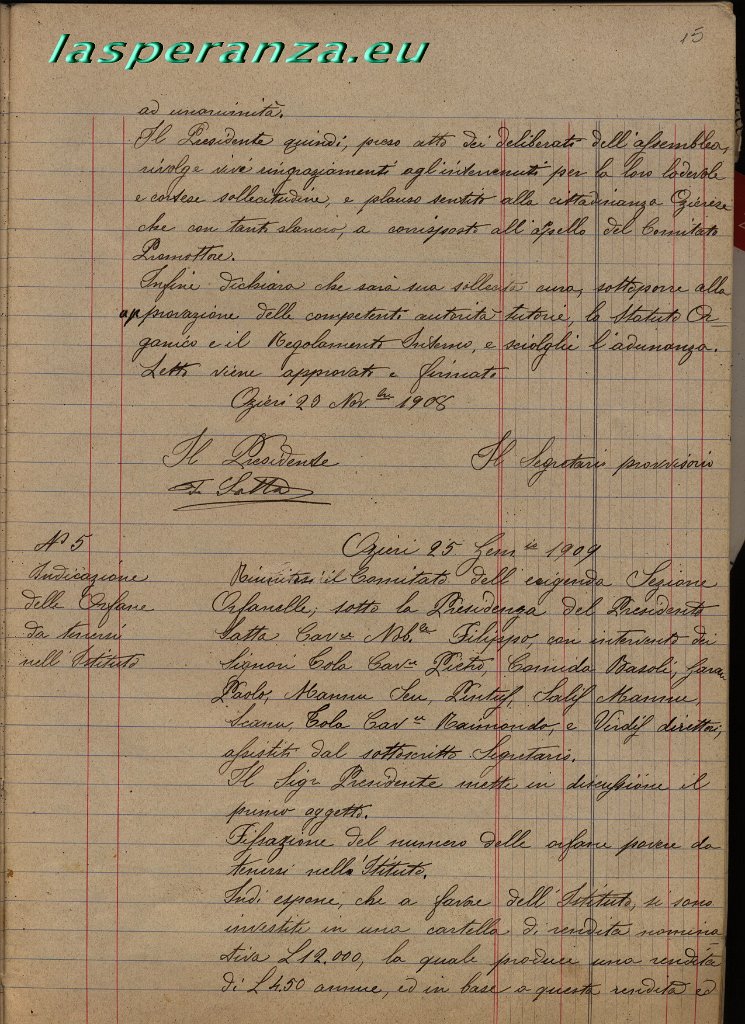 15
lasperanza.eu
ad unanimità.
Il Presidente quindi, preso atto dei deliberato dell'assemblea,
rivolge vivi ringraziamenti agl'intervenuti per la loro lodevole
e cortese sollecitudine, e plauso sentito alla cittadinanza Ozierese
che con tanto slancio, a corrisposto all'apello del Comitato
Promottore.
Infine dichiara che sarà sua sollecita cura, sottoporre alla
approvazione delle competenti autorità tutorie, lo Statuto Or-
ganico e il Regolamento Interno, e sciolghe l'adunanza.
Letto viene approvato e firmato
Ozieri 29 Nov.bre 1908
Il Presidente
Il Segretario provvisorio
F. Satta
N° 5
Ozieri 25 Genn.io 1909
Indicazione
delle Orfane
da tenersi
nell'Istituto
Riunitosi il Comitato dell'erigenda Sezione
Orfanelle, sotto la Presidenza del Presidente
Satta Cav.re Nob.le Filippo, con intervento dei
Signori Cola Cav.re Pietro, Comida Basoli,
Paolo, Mannu Seu, Pintus, Salis Mannu,
Scanu, Tola Cav.re Raimondo, e Virdis direttori,
assistiti dal sottoscritto Segretario.
Il Sigr Presidente mette in discussione il
primo oggetto.
Fissazione del numero delle orfane povere da
tenersi nello Istituto.
Indi espone, che a favore dell'Istituto, si sono
investite in una cartella di rendita nomina-
tiva L 12.000, la quale produce una rendita
di L 450 annue, ed in base a questa rendita ed